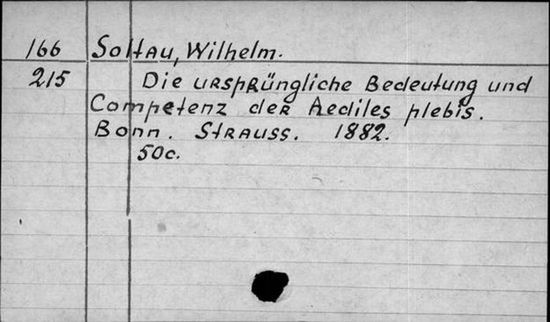 166 Soltau, Wilhelm.
215 Die ursprüngliche Bedeutung und
Competenz der Aediles plebis.
Bonn. Strauss. 1882.
50c.